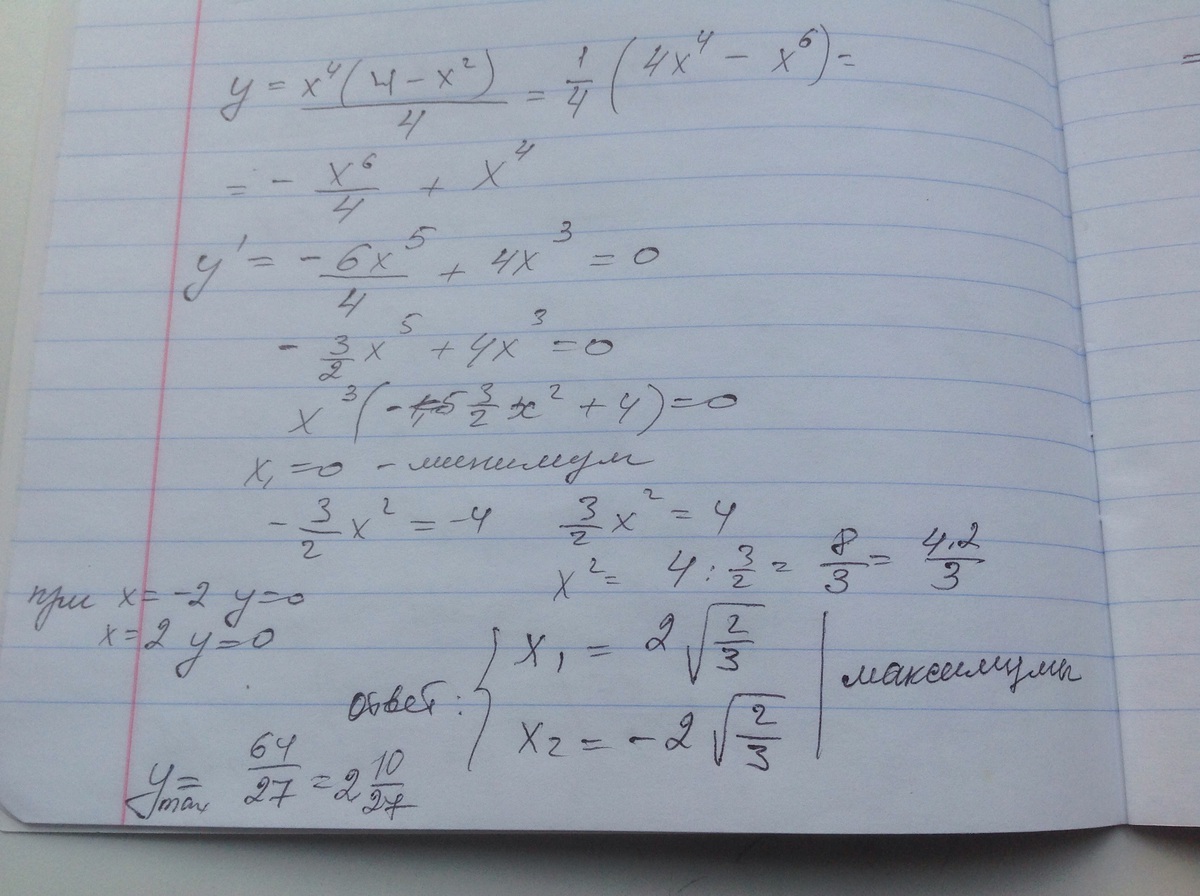 y = x⁴(4 − x²)/4 = 1/4 (4x⁴ − x⁶) =
= − x⁶/4 + x⁴
y' = − 6x⁵/4 + 4x³ = 0
− 3/2 x⁵ + 4x³ = 0
x³(− 3/2 x² + 4) = 0
x₁ = 0 − минимум
− 3/2 x² = −4 3/2 x² = 4
x² = 4 : 3/2 = 8/3 = 4·2/3
при x = −2 y = 0
x = 2 y = 0
ответ: { x₁ = 2√(2/3) | максимумы
x₂ = −2√(2/3)
y max = 64/27 = 2 10/27
=